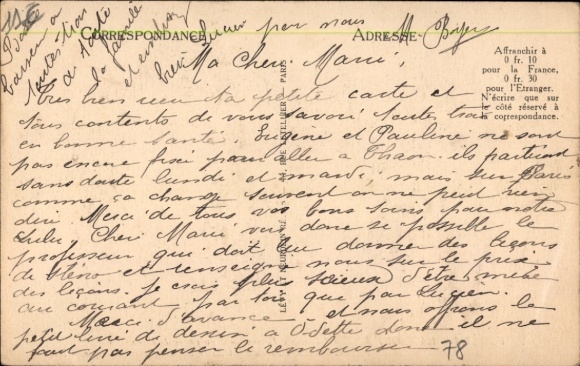 CORRESPONDANCE
ADRESSE
par nous
Ma Cheri Marie,
Très bien reçu ta petite carte et
tous contents de vous savoir toutes trois
en bonne santé. Eugène et Pauline ne sont
pas encore fixé pour aller a Thaon. ils partiront
sans doute lundi et mardi, mais sur Paris
comme ça change souvent on ne peut rien
dire Merci de tous vos bons soins pour notre
Lulu, Cheri Marie vois donc si possible le
professeur qui doit lui donner des leçons
de Steno et renseigne nous sur le prix
des leçons. Je serais plus sérieux d'être mise
au courant par toi que par Lucien.
Merci d'avance et nous offrons le
petit livre de dessin a Odette donc il ne
faut pas penser le rembourser
78
Affranchir à
0 fr. 10
pour la France,
0 fr. 30
pour l'Etranger.
N'écrire que sur
le côté réservé à
la correspondance.
Bons
baisers a
toutes trois
de toute
la famille
Lucien
PARIS